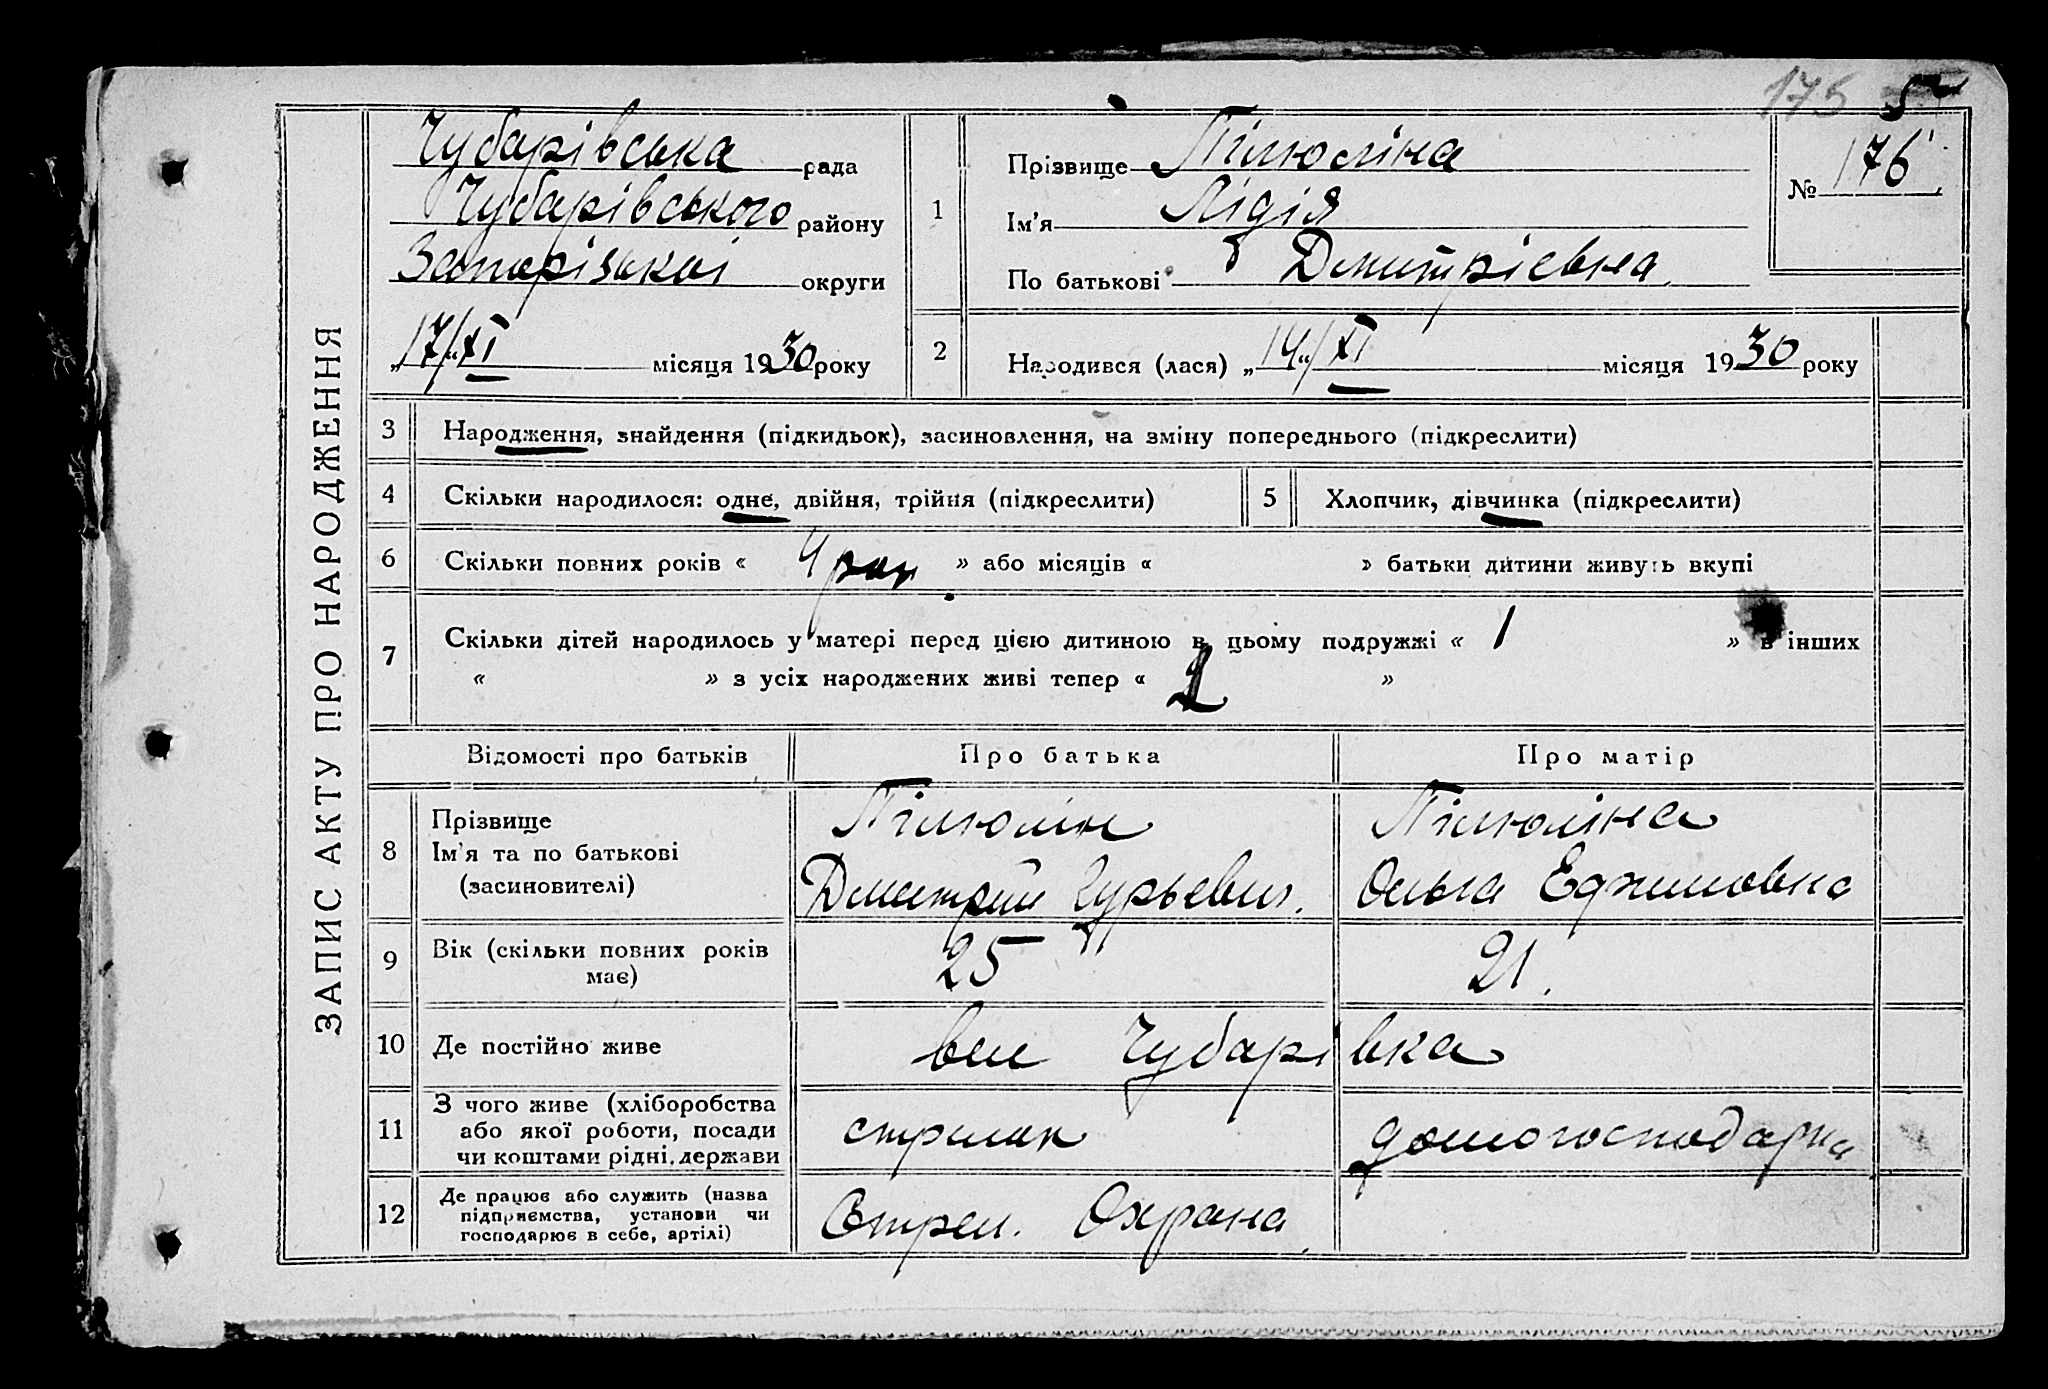 175 5
ЗАПИС АКТУ ПРО НАРОДЖЕННЯ
Чубарівська рада
Чубарівського району
Запорізькоі округи
„17/“ XI місяця 1930 року
1
Прізвище Пілюліна
Ім’я Лідія
По батькові Дмитріевна
№ 176
2 Народився (лася) „14“/XI місяця 1930 року
3 Народження, знайдення (підкидьок), засиновлення, на зміну попереднього (підкреслити)
4 Скільки народилося: одне, двійня, трійня (підкреслити) 5 Хлопчик, дівчинка (підкреслити)
6 Скільки повних років « 4 » або місяців « » батьки дитини живуть вкупі
7 Скільки дітей народилось у матері перед цією дитиною в цьому подружжі « 1 » в інших
« » з усіх народжених живі тепер « »
Відомості про батьків Про батька Про матір
8 Прізвище Пілюлін Пілюліна
Ім’я та по батькові Дмитрий Гурьевич. Ольга
(засиновителі)
9 Вік (скільки повних років має) 25 21.
10 Де постійно живе вел Чубарівка
11 З чого живе (хліборобства
або якої роботи, посади стрилак домогосподарка
чи коштами рідні, держави
12 Де працює або служить (назва
підприємства, установи чи Стрел. Охрана
господарює в себе, артілі)